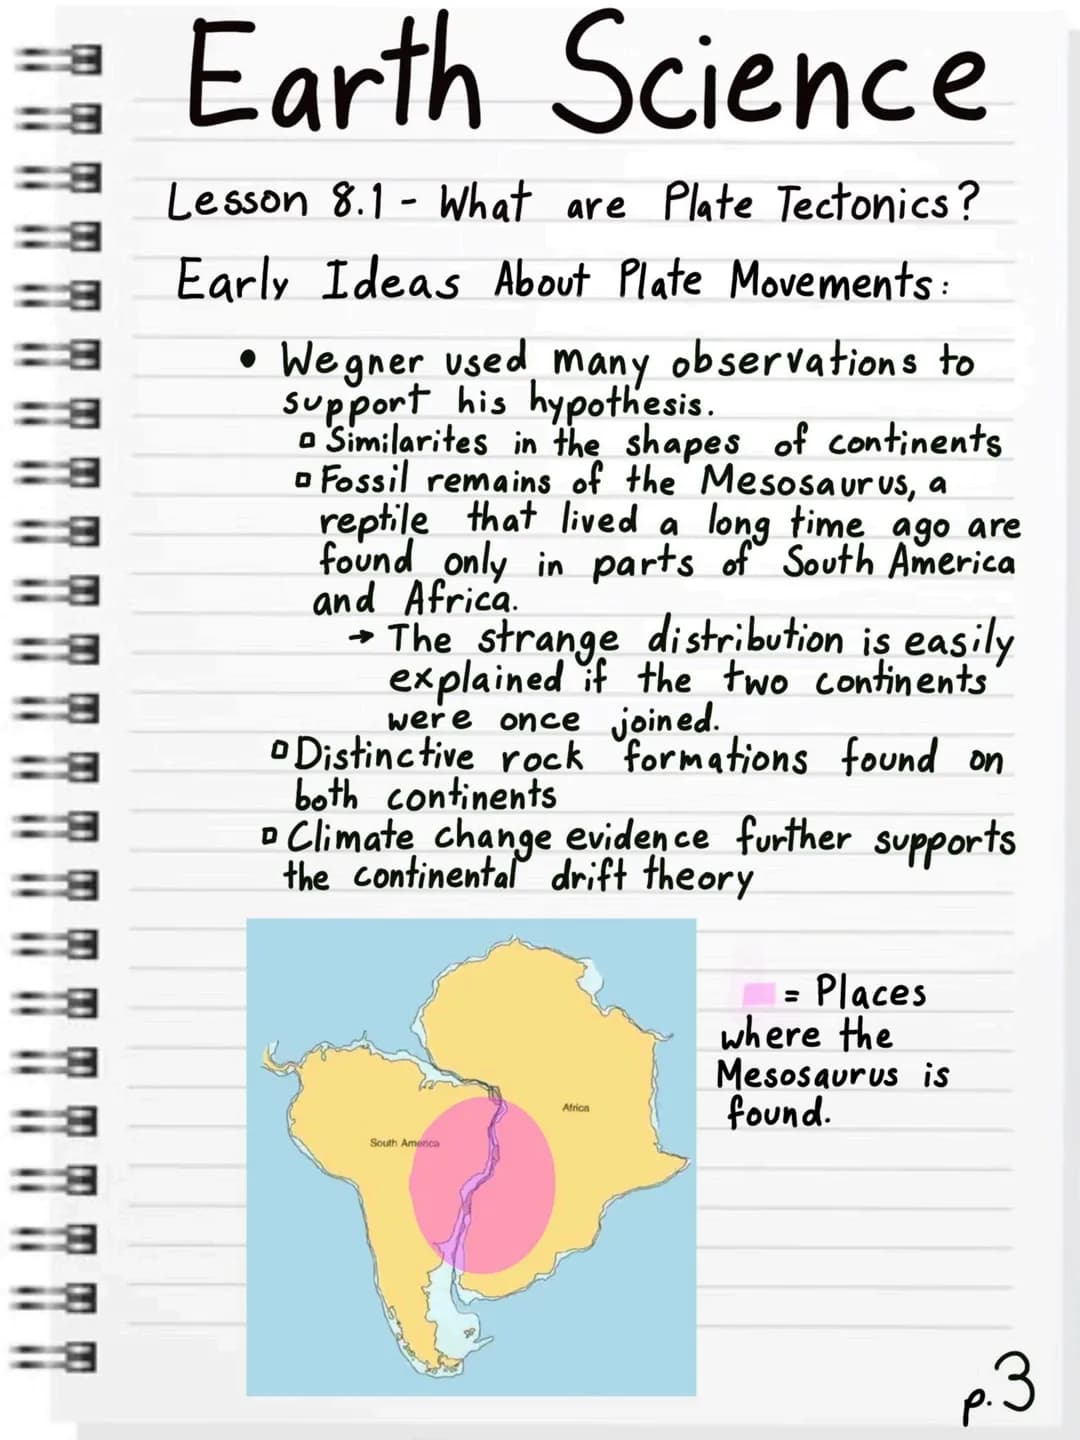 Earth Science
Lesson 8.1 - What are Plate Tectonics?
Early Ideas About Plate Movements:
• Wegner used many observations to
support his hypothesis.
▫ Similarites in the shapes of continents
▫ Fossil remains of the Mesosaurus, a
reptile that lived a long time ago are
found only in parts of South America
and Africa.
→ The strange distribution is easily
explained if the two continents
were once joined.
▫ Distinctive rock formations found on
both continents
▫ Climate change evidence further supports
the continental drift theory
= Places
where the
Mesosaurus is
found.
Africa
South America
p.3